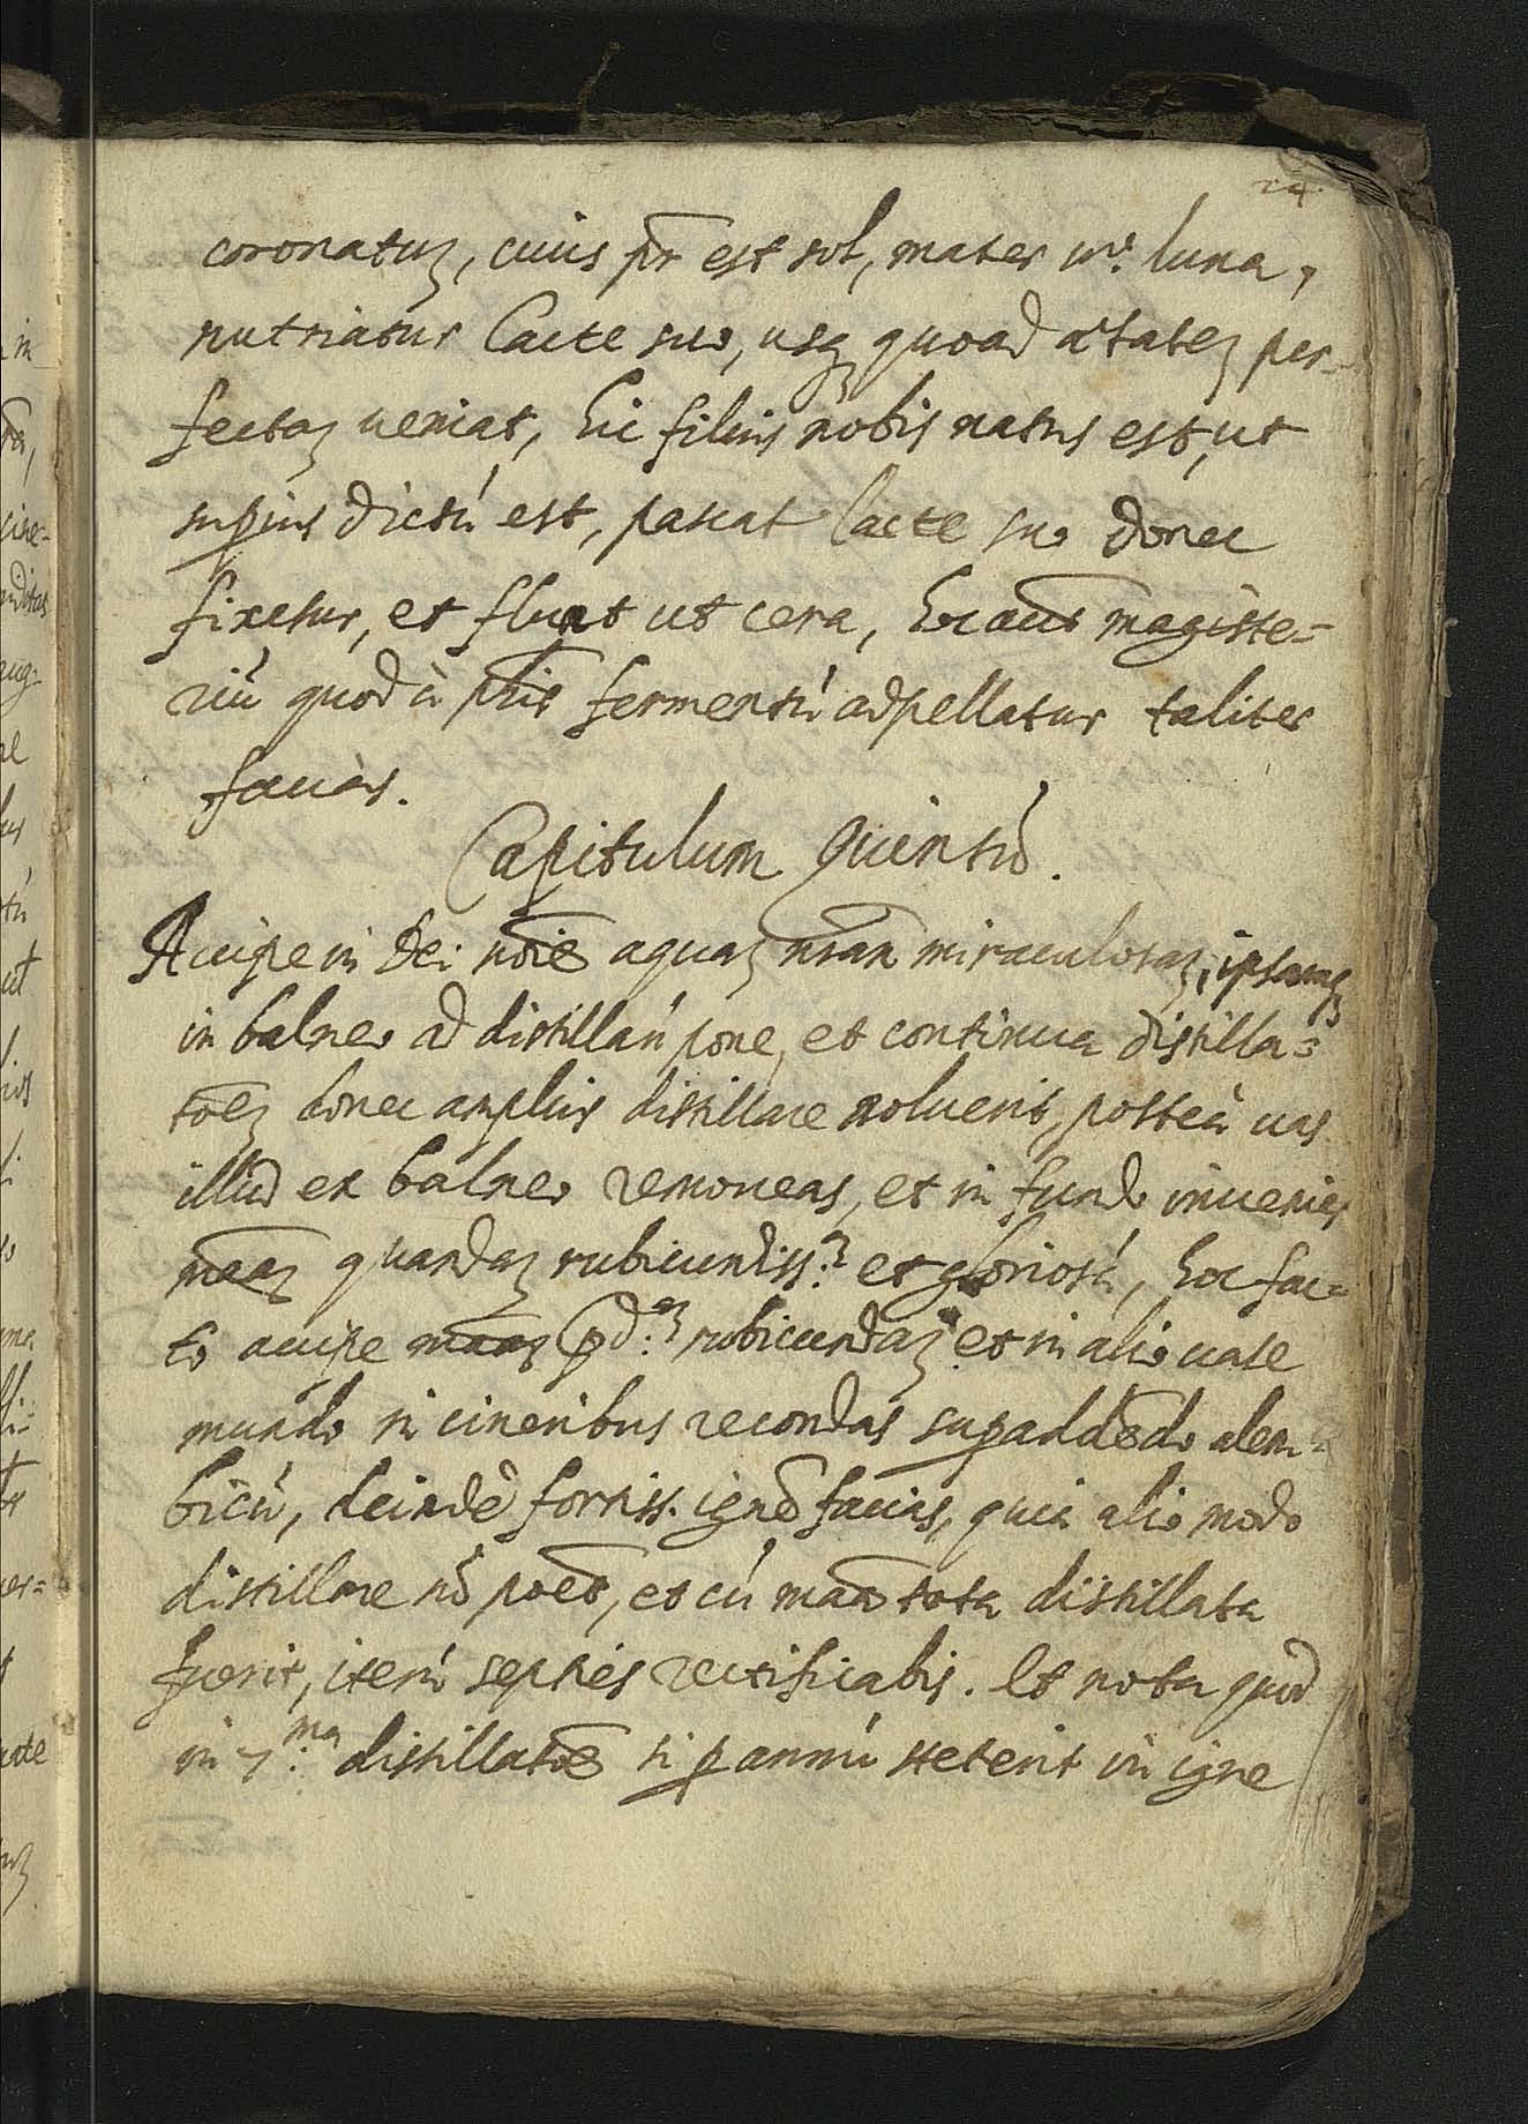 24.
coronatuʒ, cuius pr̄ est sol, mater vº. luna,
nutriatur lacte suo, usqʒ quoad ætateʒ per-
fectaʒ ueniat, hic filius nobis natus est, ut
suꝑius dictũ est, pascat lacte suo donec
fixetur, et fluat ut cera, hoc aũt magiste=
riũ quod à phis̄ fermentũ adpellatur taliter
facias.
Capitulum Quintũ.
Accipe in Dei noīe aquaʒ nr̄am miraculosaʒ, ipsamqʒ
in balneo ad distillañ pone, et continua distilla=
tōeʒ donec amplius distillare noluerit, posteà uas
illud ex balneo remoueas, et in fundo inuenies
māaʒ quandaʒ rubicundiss:ʒ et gloriosã, hoc fac=
to accipe māaʒ p̄d:aʒ rubicundaʒ et in alio uase
mundo in cineribus recondas suꝑaddēdo alem=
bicũ, deindè fortiss. ignē facias, quia alio modo
distillare nō poēt, et cũ māa tota distillata
fuerit, iterũ septiès rectificabis. Et nota quod
in 7:ma distillatōe si ꝑ annũ steterit in igne